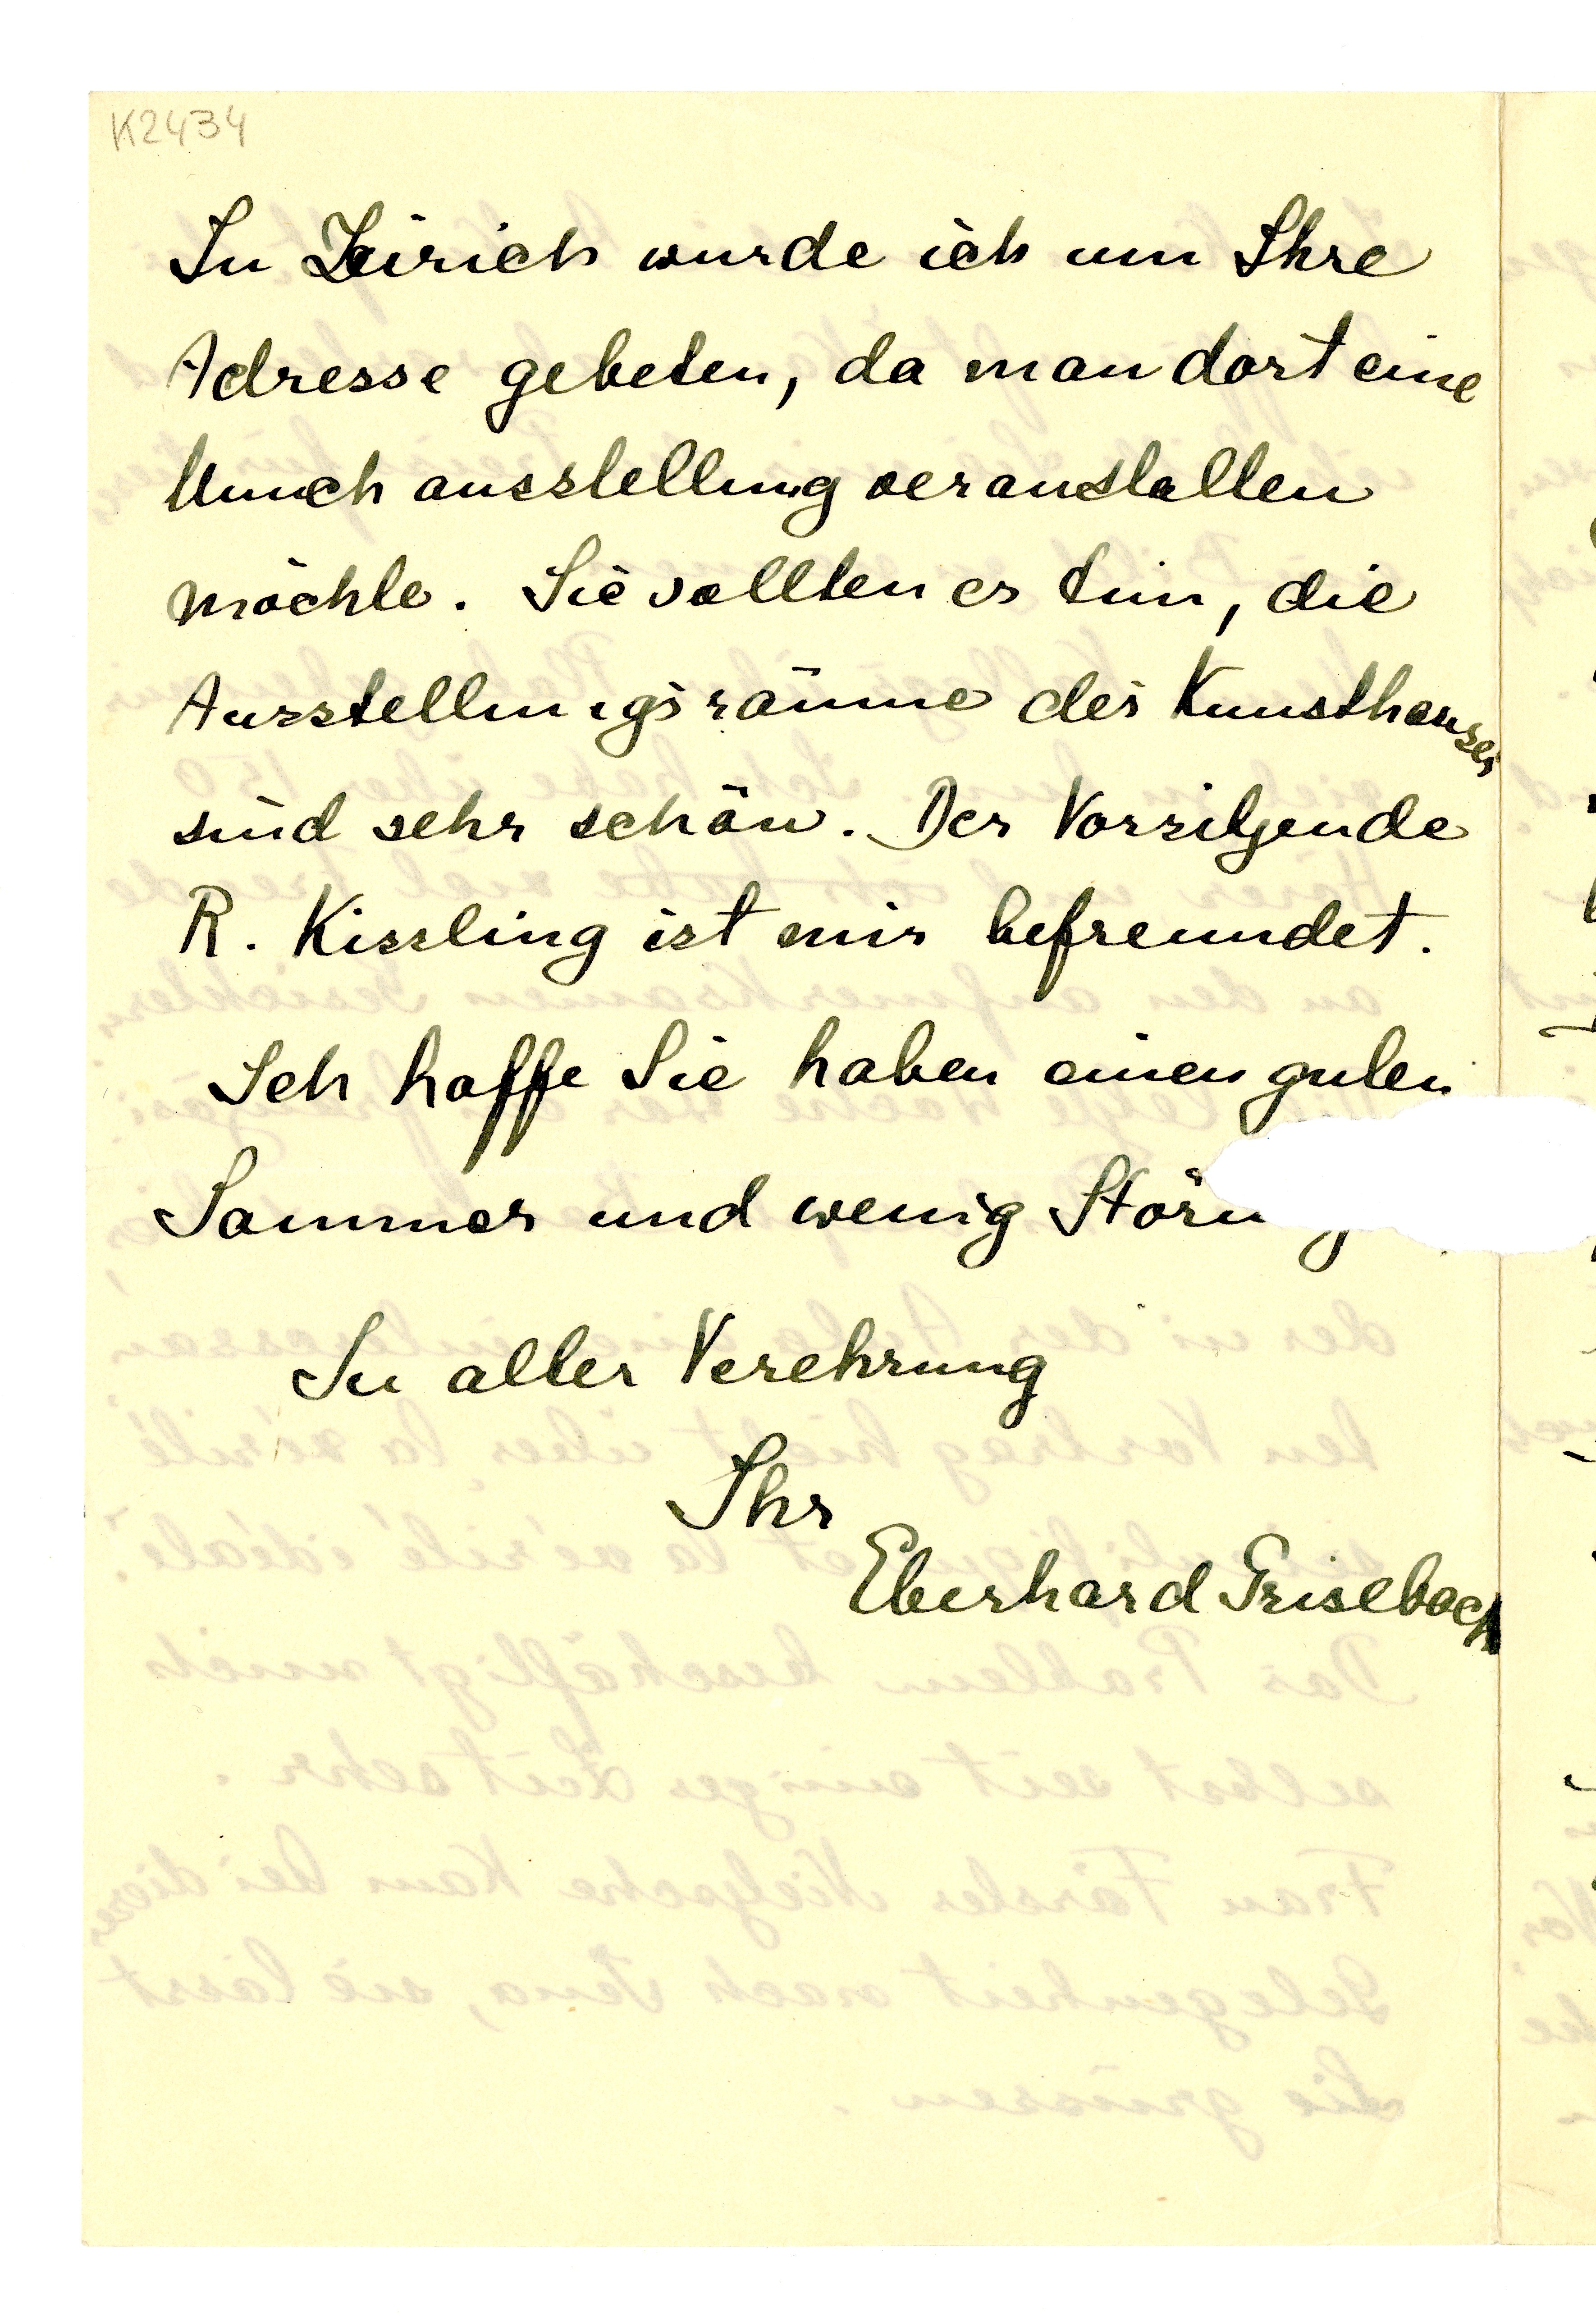 K2434
In Zürich wurde ich um Ihre
Adresse gebeten, da man dort eine
Munch ausstellung veranstalten
möchte. Sie sollten es tun, die
Ausstellungsräume des Kunsthauses
sind sehr schön. Der Vorsitzende
R. Kissling ist mir befreundet.
Ich hoffe Sie haben einen guten
Sommer und wenig
In aller Verehrung
Ihr
Eberhard Grisebach